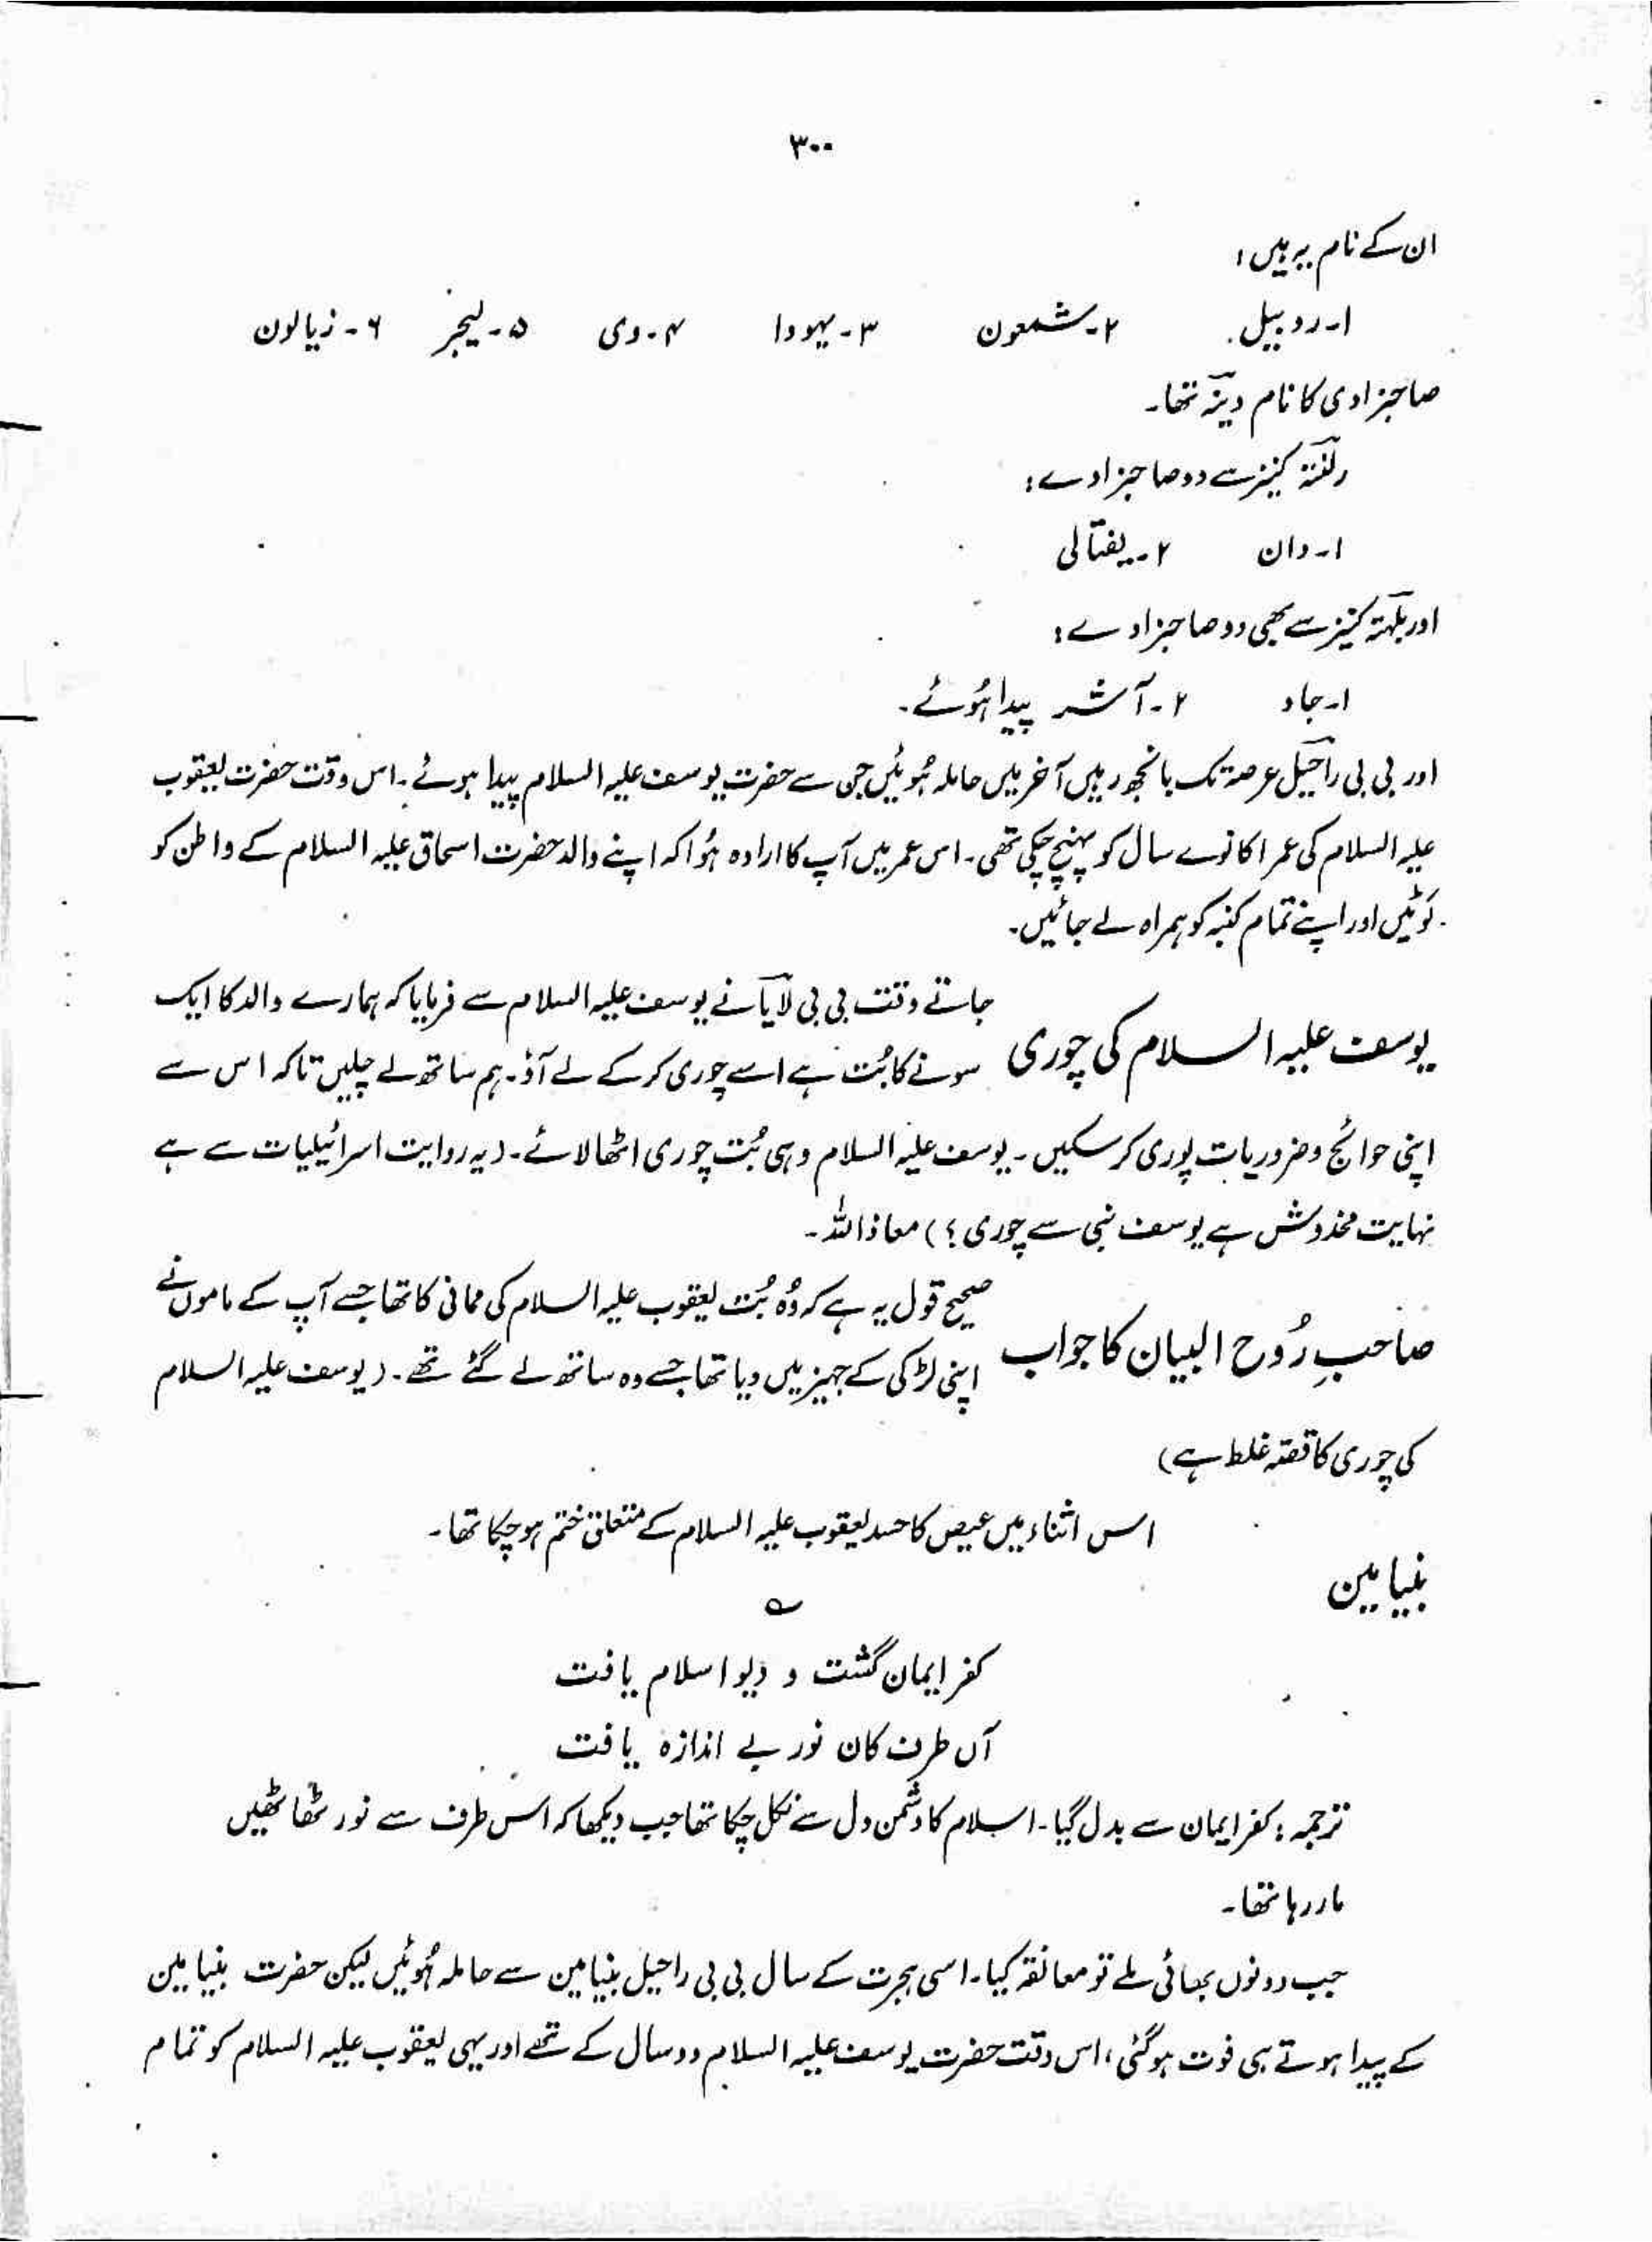 ۳۰۰
ان کے نام یہ ہیں:
۱۔ روبیل ۲۔ شمعون ۳۔ یہودا ۴۔ وی ۵۔ لیجر ۶۔ زیالون
صاحبزادی کا نام دینہ تھا۔
زلفتہ کنیز سے دو صاحبزادے:
۱۔ دان ۲۔ یفتالی
اور بلہتہ کنیز سے بھی دو صاحبزادے:
۱۔ جاد ۲۔ آشر پیدا ہُوئے۔
اور بی بی راحیل عرصہ تک بانجھ رہیں آخر میں حاملہ ہُوئیں جن سے حضرت یوسف علیہ السلام پیدا ہوئے۔ اس وقت حضرت یعقوب
علیہ السلام کی عمر اکانوے سال کو پہنچ چکی تھی۔ اس عمر میں آپ کا ارادہ ہُوا کہ اپنے والد حضرت اسحاق علیہ السلام کے واطن کو
لَوٹیں اور اپنے تمام کنبہ کو ہمراہ لے جائیں۔
یوسف علیہ السلام کی چوری
جاتے وقت بی بی لایا نے یوسف علیہ السلام سے فرمایا کہ ہمارے والد کا ایک
سونے کا بُت ہے اسے چوری کر کے لے آؤ۔ ہم ساتھ لے چلیں تاکہ اس سے
اپنی حوائج و ضروریات پوری کر سکیں۔ یوسف علیہ السلام وہی بُت چوری اٹھا لائے۔ (یہ روایت اسرائیلیات سے ہے
نہایت مخدوش ہے یوسف نبی سے چوری؟) معاذ اللہ۔
صاحبِ رُوح البیان کا جواب
صحیح قول یہ ہے کہ وُہ بُت یعقوب علیہ السلام کی ممانی کا تھا جسے آپ کے ماموں نے
اپنی لڑکی کے جہیز میں دیا تھا جسے وہ ساتھ لے گئے تھے۔ (یوسف علیہ السلام
کی چوری کا قصّہ غلط ہے)
اس اثناء میں عیص کا حسد یعقوب علیہ السلام کے متعلق ختم ہو چکا تھا۔
بنیامین
کفر ایمان گشت و دیو اسلام یافت
آں طرف کان نور بے اندازہ یافت
ترجمہ: کفر ایمان سے بدل گیا۔ اسلام کا دشمن دل سے نکل چکا تھا جب دیکھا کہ اس طرف سے نور ٹھاٹھیں
مار رہا تھا۔
جب دونوں بھائی ملے تو معانقہ کیا۔ اسی ہجرت کے سال بی بی راحیل بنیامین سے حاملہ ہُوئیں لیکن حضرت بنیامین
کے پیدا ہوتے ہی فوت ہو گئی، اس وقت حضرت یوسف علیہ السلام دو سال کے تھے اور یہی یعقوب علیہ السلام کو تمام